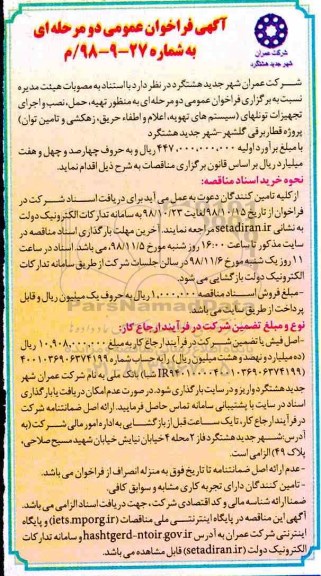 آگهی فراخوان عمومی دو مرحله ای
به شماره ۲۷-۹-۹۸/م
شرکت عمران
شهر جدید هشتگرد
شرکت عمران شهر جدید هشتگرد در نظر دارد با استناد به مصوبات هیئت مدیره
نسبت به برگزاری فراخوان عمومی دو مرحله ای به منظور تهیه، حمل، نصب و اجرای
تجهیزات تونلهای (سیستم های تهویه، اعلام و اطفاء حریق، زهکشی و تامین توان)
پروژه قطار برقی گلشهر - شهر جدید هشتگرد
با مبلغ برآورد اولیه ۴۴۷,۰۰۰,۰۰۰,۰۰۰ ریال و به حروف چهارصد و چهل و هفت
میلیارد ریال بر اساس قانون برگزاری مناقصات به شرح ذیل اقدام نماید.
نحوه خرید اسناد مناقصه:
از کلیه تامین کنندگان دعوت به عمل می آید برای دریافت اسناد شرکت در
فراخوان از تاریخ ۹۸/۱۰/۱۵ لغایت ۹۸/۱۰/۲۳ به سامانه تدارکات الکترونیک دولت
به نشانی setadiran.ir مراجعه نمایند. آخرین مهلت بارگذاری اسناد مناقصه در
سایت مذکور تا ساعت ۱۶:۰۰ روز شنبه مورخ ۹۸/۱۱/۵ می باشد. اسناد در ساعت
۱۱ روز یک شنبه مورخ ۹۸/۱۱/۶ در سالن جلسات شرکت از طریق سامانه تدارکات
الکترونیک دولت بازگشایی می شود.
-مبلغ فروش اسناد مناقصه ۱,۰۰۰,۰۰۰ ریال به حروف یک میلیون ریال و قابل
پرداخت از طریق سایت می باشد.
نوع و مبلغ تضمین شرکت در فرآیند ارجاع کار:
-اصل فیش یا تضمین شرکت در فرآیند ارجاع کار به مبلغ ۱۰,۹۰۸,۰۰۰,۰۰۰ ریال
(ده میلیارد و نهصد و هشت میلیون ریال) را به حساب شماره ۴۰۰۱۰۳۶۹۰۶۳۷۴۱۹۹
بانک ملی به نام شرکت عمران شهر
جدید هشتگرد واریز و در سایت بارگذاری شود. در صورت عدم امکان دریافت یا بارگذاری
اسناد در سایت با پشتیبانی سامانه تماس حاصل فرمایید. ارائه اصل ضمانتنامه شرکت
در فرآیند ارجاع کار، تا یک ساعت قبل از بازگشایی به اداره امور مالی شرکت (به
آدرس: شهر جدید هشتگرد فاز ۲ محله ۴ خیابان نیایش خیابان شهید مسیح صلاحی،
پلاک ۴۹) الزامی است.
-عدم ارائه اصل ضمانتنامه تا تاریخ فوق به منزله انصراف از فراخوان می باشد.
-تامین کنندگان دارای تجربه کاری مشابه و سوابق کافی.
ضمنا ارائه شناسه ملی و کد اقتصادی شرکت، جهت دریافت اسناد الزامی می باشد.
آگهی این مناقصه در پایگاه اینترنتی ملی مناقصات (iets.mporg.ir) و پایگاه
اینترنتی شرکت عمران به آدرس hashtgerd-ntoir.gov.ir و سامانه تدارکات
الکترونیک دولت (setadiran.ir) قابل مشاهده می باشد.
ParsNamadData